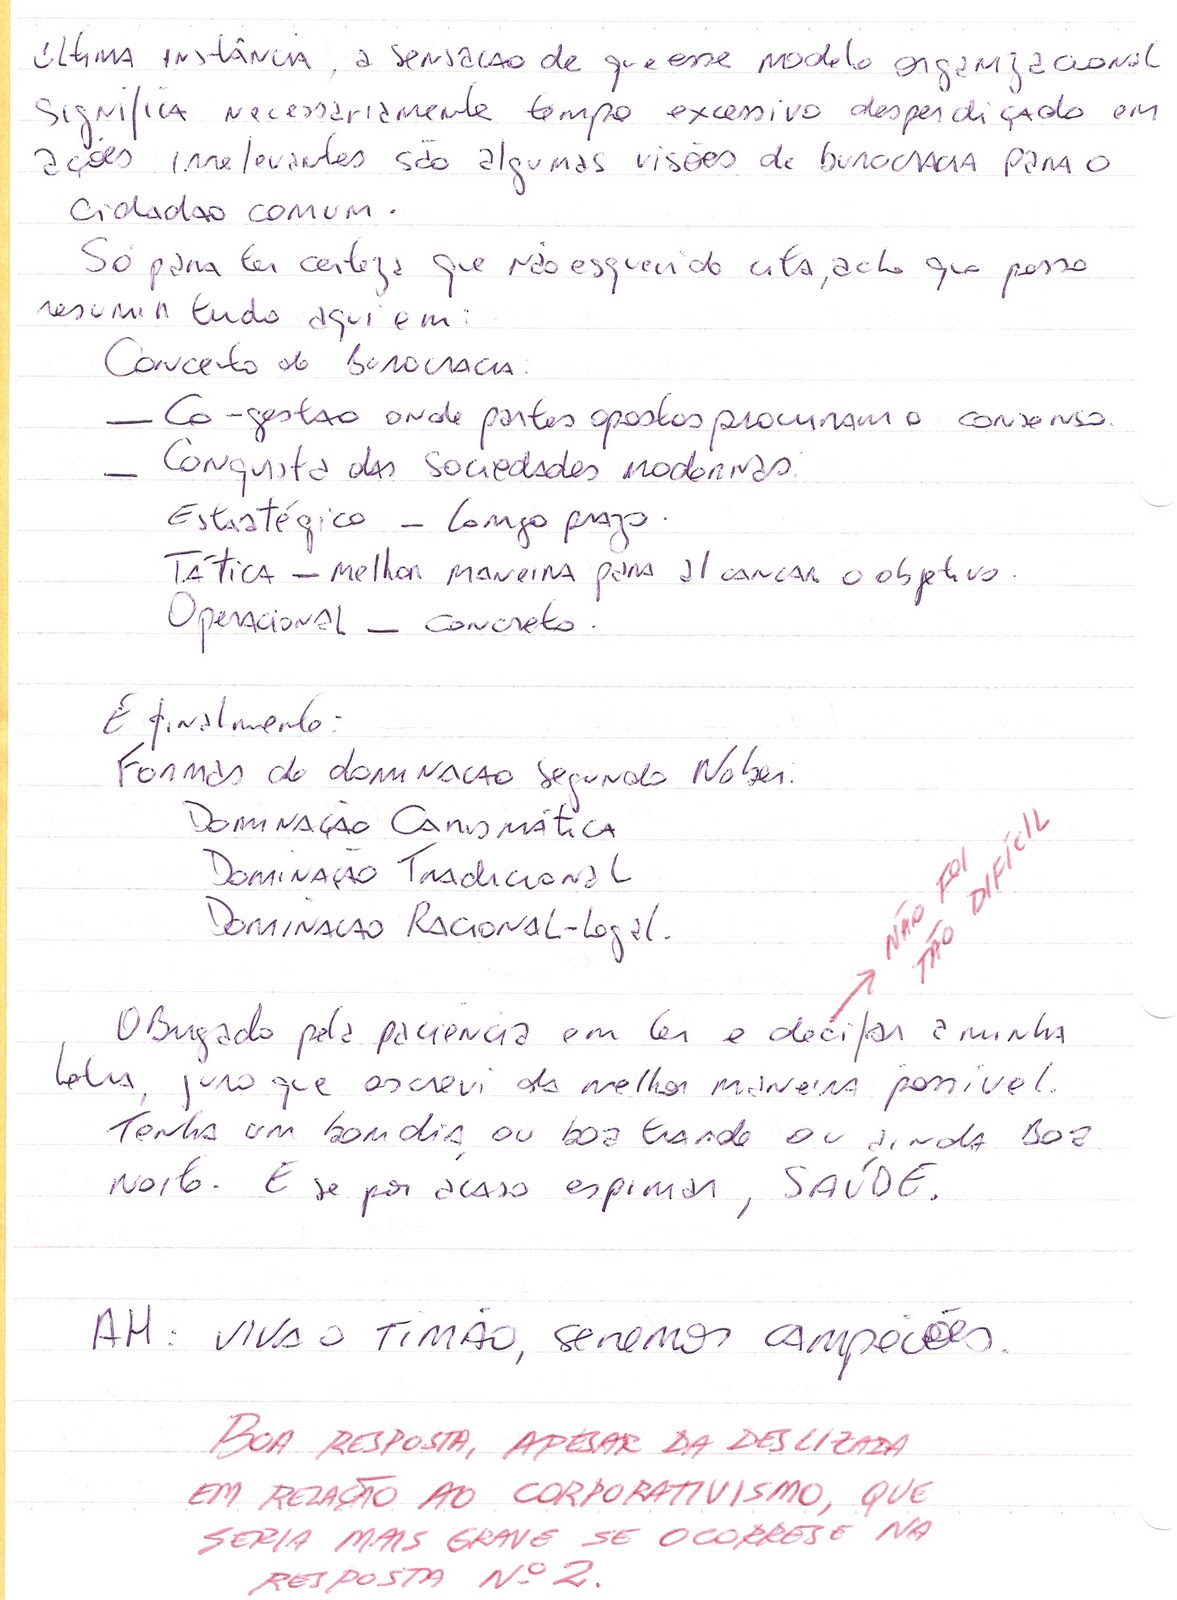 última instância, a sensacao de que esse modelo organizacional
significa necessariamente tempo excessivo desperdiçado em
ações irrelevantes são algumas visões de burocracia para o
cidadao comum.
Só para ter certeza que não esqueci de , acho que posso
resumir tudo aqui em:
Conceito de burocracia:
— Co-gestao onde partes opostas procuram o consenso.
— Conquista das sociedades modernas.
Estratégico — Longo prazo.
Tática — melhor maneira para alcancar o objetivo.
Operacional — concreto.
E finalmente:
Formas de dominacao segundo Weber:
Dominação Carismática
Dominação Tradicional
Dominacao Racional-Legal.
NÃO FOI
TÃO DIFÍCIL
Obrigado pela paciência em ler e decifar a minha
letra, juro que escrevi da melhor maneira possível.
Tenha um bom dia, ou boa tarde ou ainda Boa
noite. E se por acaso espirrar, SAÚDE.
AH: VIVA O TIMÃO, seremos campeões.
BOA RESPOSTA, APESAR DA DESLIZADA
EM RELAÇÃO AO CORPORATIVISMO, QUE
SERIA MAIS GRAVE SE OCORRESE NA
RESPOSTA Nº 2.